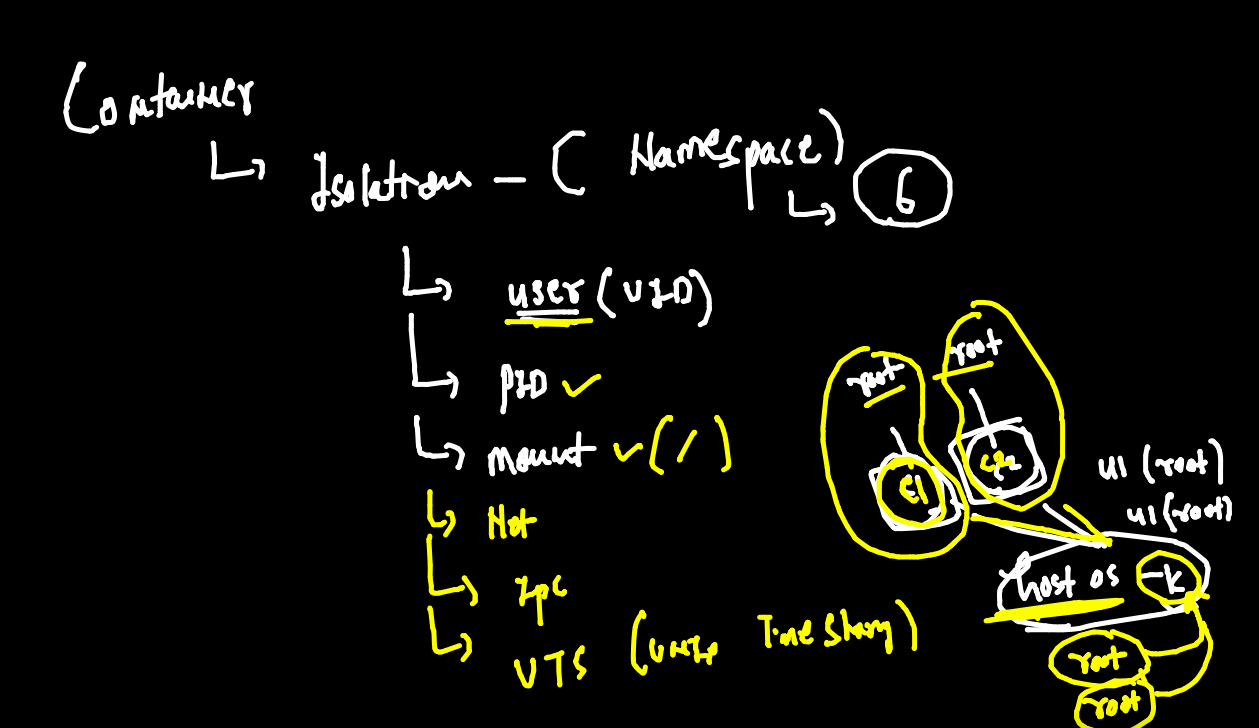 Container
Isolation - ( Namespace)
6
user (UID)
PID
mount (/)
Net
Ipc
UTS (Unix Time Sharing)
root
root
c1
u1 (root)
u1 (root)
host os -k
root
root